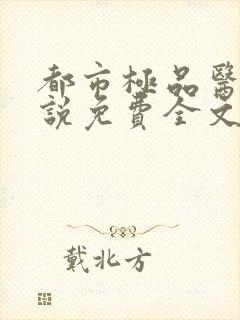 都市極品醫
說免費全文
戴北方